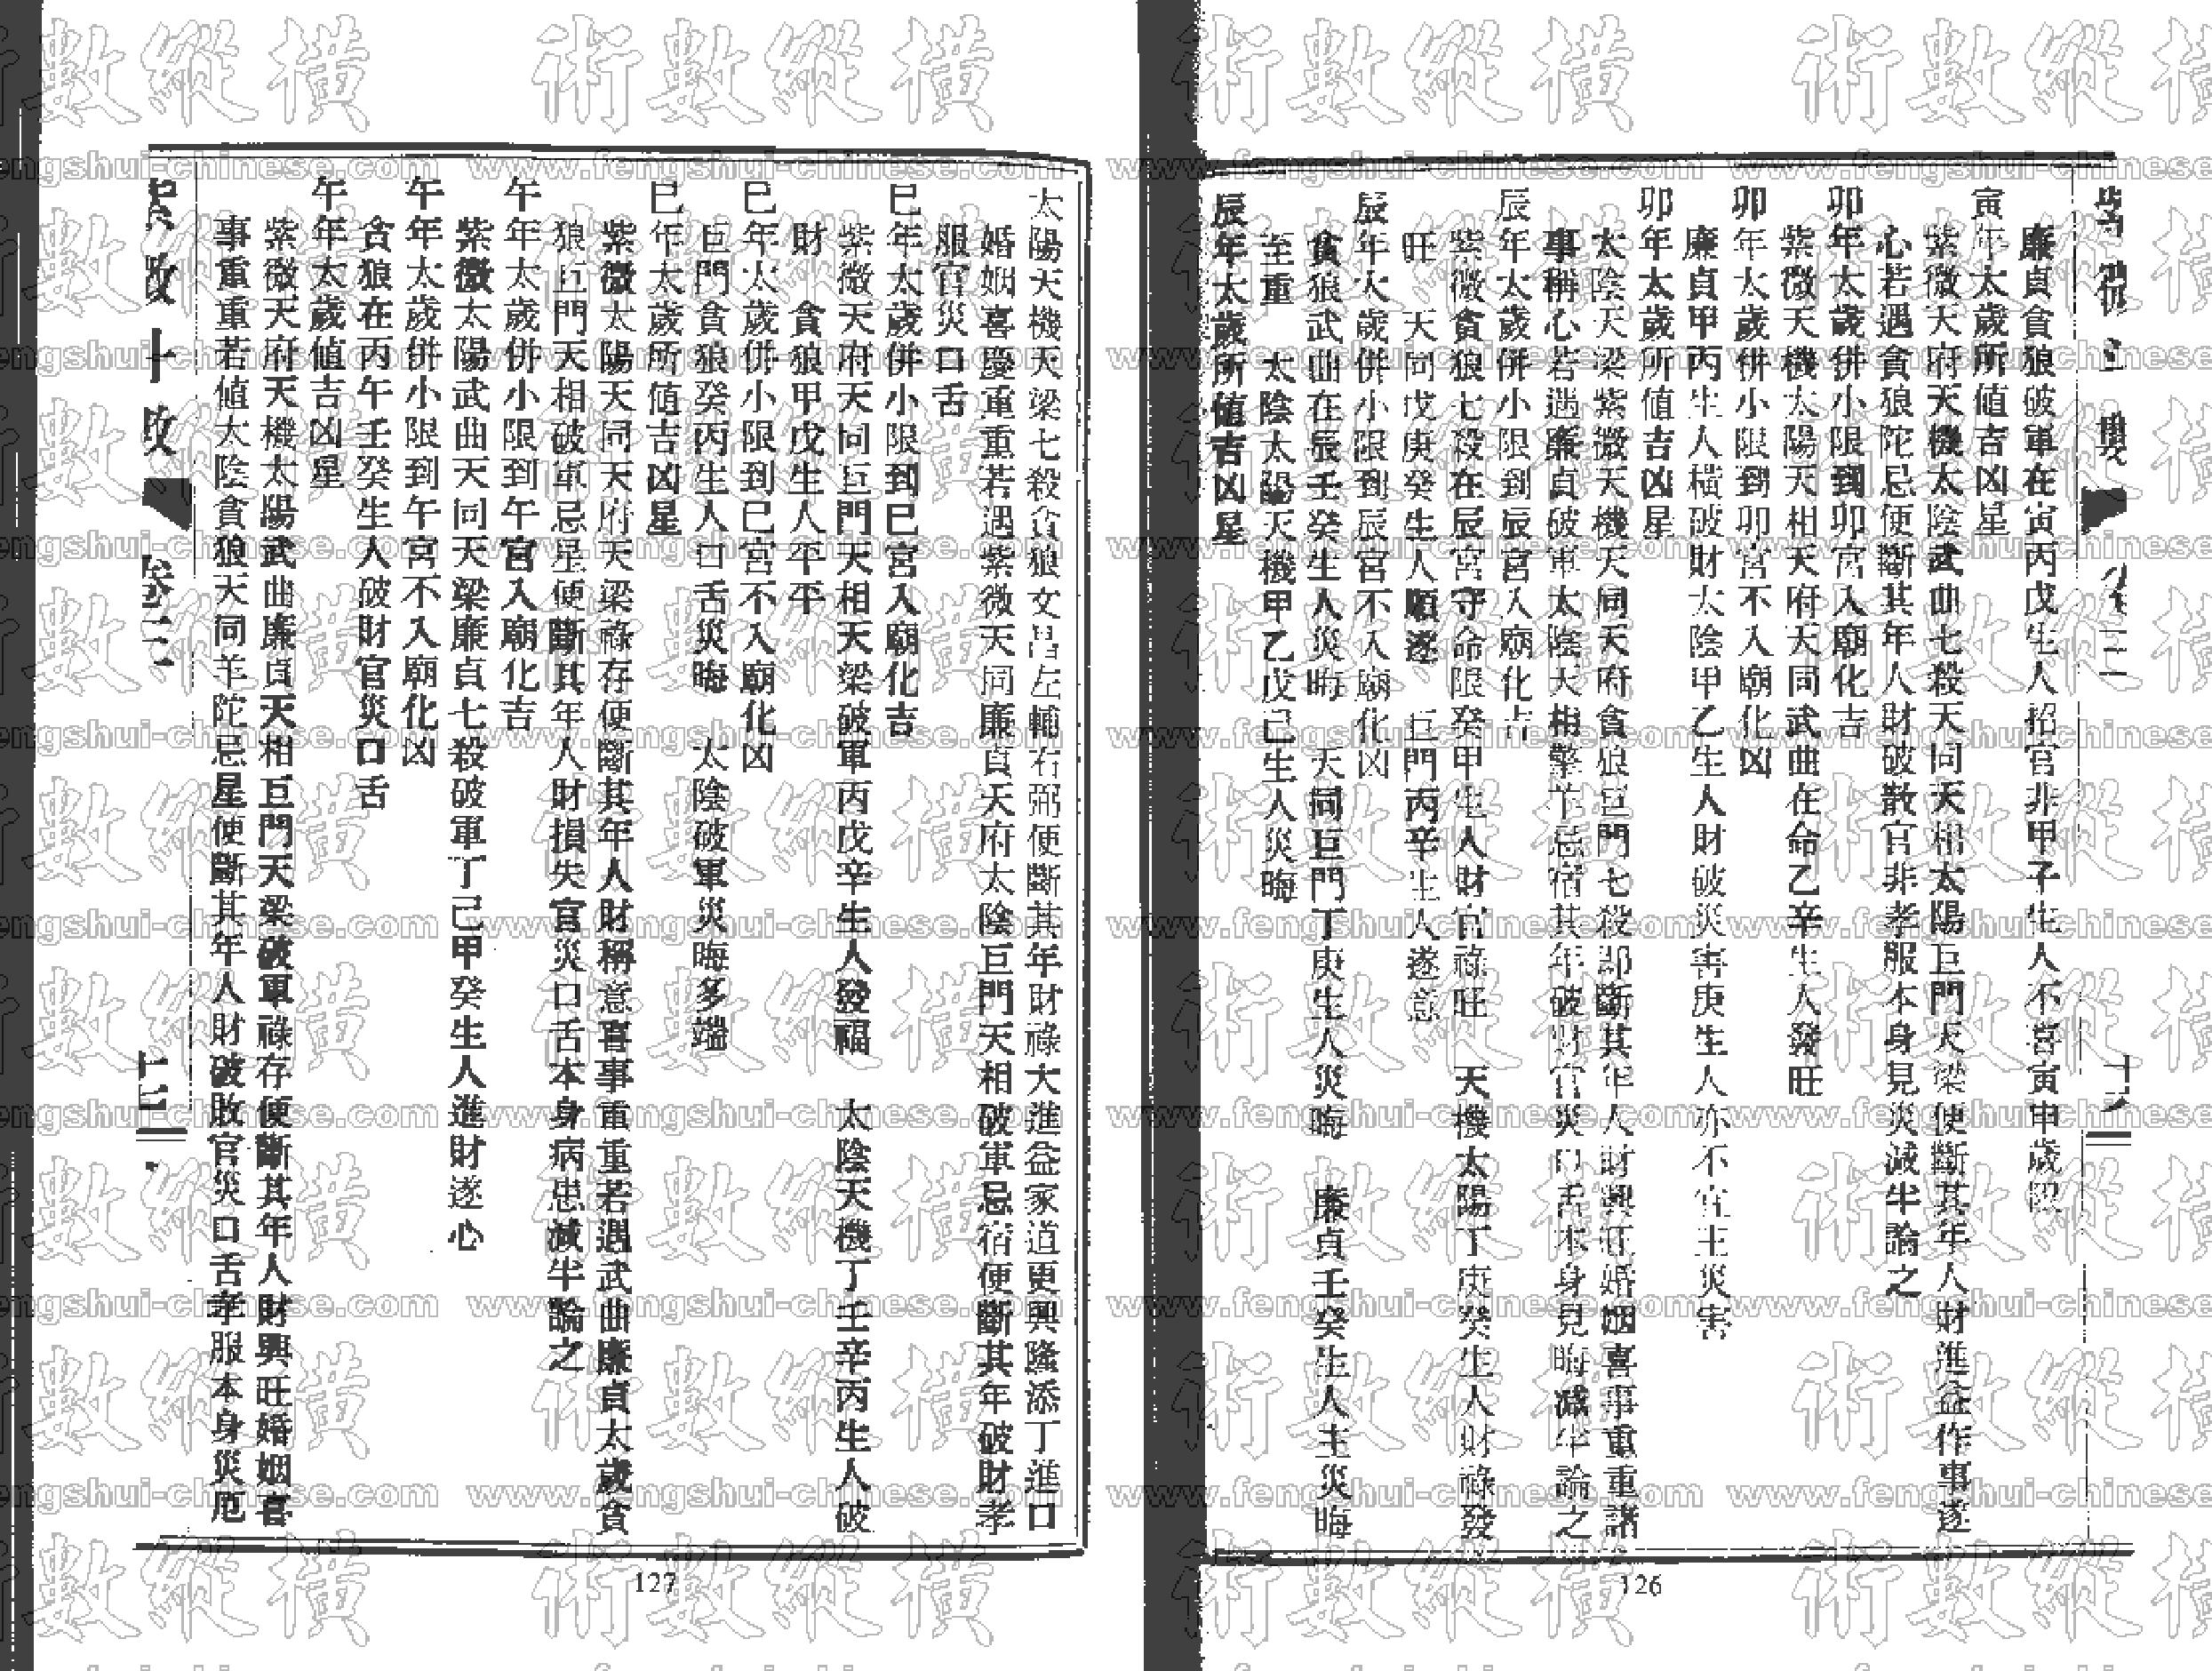 廉貞貪狼破軍在寅丙戊生人招官非甲子生人不喜寅申歲限
寅年太歲所值吉凶星
紫微天府天機太陰武曲七殺天同天相太陽巨門天梁便斷其年人財進益作事遂
心若遇貪狼陀忌便斷其年人財破散官非孝服本身見災減半論之
卯年太歲併小限到卯宮入廟化吉
紫微天機太陽天相天府天同武曲在命乙辛生人發旺
卯年太歲併小限到卯宮不入廟化凶
廉貞甲丙生人橫破財太陰甲乙生人財破災害庚生人亦不宜主災害
卯年太歲所值吉凶星
太陰天梁紫微天機天同天府貪狼巨門七殺即斷其年人財興旺婚姻喜事重重諸
事稱心若遇廉貞破軍太陰天相擎羊忌宿其年破財官災口舌本身見晦減半論之
辰年太歲併小限到辰宮入廟化吉
紫微貪狼七殺在辰宮守命限癸甲生人財官祿旺　天機太陽丁庚癸生人財祿發
旺　天同戊庚癸生人順遂　巨門丙辛生人遂意
辰年太歲併小限到辰宮不入廟化凶
貪狼武曲在辰壬癸生人災晦　天同巨門丁庚生人災晦　廉貞壬癸生人主災晦
至重　太陰太陽天機甲乙戊己生人災晦
辰年太歲所值吉凶星
126
太陽天機天梁七殺貪狼文昌左輔右弼便斷其年財祿大進益家道更興隆添丁進口
婚姻喜慶重重若遇紫微天同廉貞天府太陰巨門天相破軍忌宿便斷其年破財孝
服官災口舌
巳年太歲併小限到巳宮入廟化吉
紫微天府天同巨門天相天梁破軍丙戊辛生人發福　太陰天機丁壬辛丙生人破
財　貪狼甲戊生人平平
巳年太歲併小限到巳宮不入廟化凶
巨門貪狼癸丙生人口舌災晦　太陰破軍災晦多端
巳年太歲所值吉凶星
紫微太陽天同天府天梁祿存便斷其年人財稱意喜事重重若遇武曲廉貞太歲貪
狼巨門天相破軍忌星便斷其年人財損失官災口舌本身病患減半論之
午年太歲併小限到午宮入廟化吉
紫微太陽武曲天同天梁廉貞七殺破軍丁己甲癸生人進財遂心
午年太歲併小限到午宮不入廟化凶
貪狼在丙午壬癸生人破財官災口舌
午年太歲值吉凶星
紫微天府天機太陽武曲廉貞天相巨門天梁破軍祿存便斷其年人財興旺婚姻喜
事重重若值太陰貪狼天同羊陀忌星便斷其年人財破敗官災口舌孝服本身災厄
卷三
127
術數縱橫
www.fengshui-chinese.com